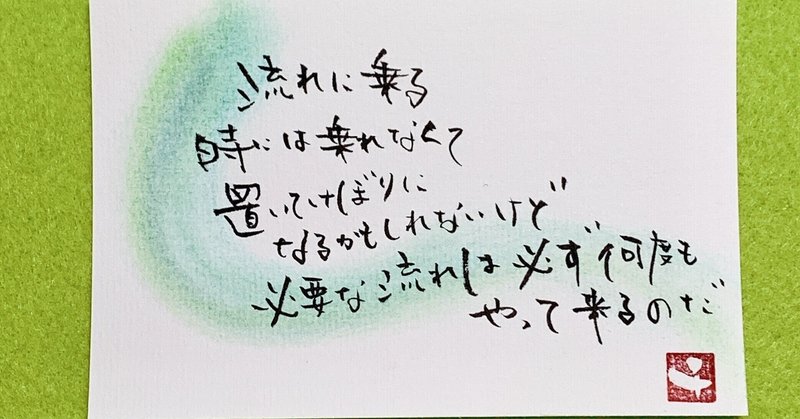 流れに乗る
時には乗れなくて
置いてけぼりに
なるかもしれないけど
必要な流れは必ず何度も
やって来るのだ